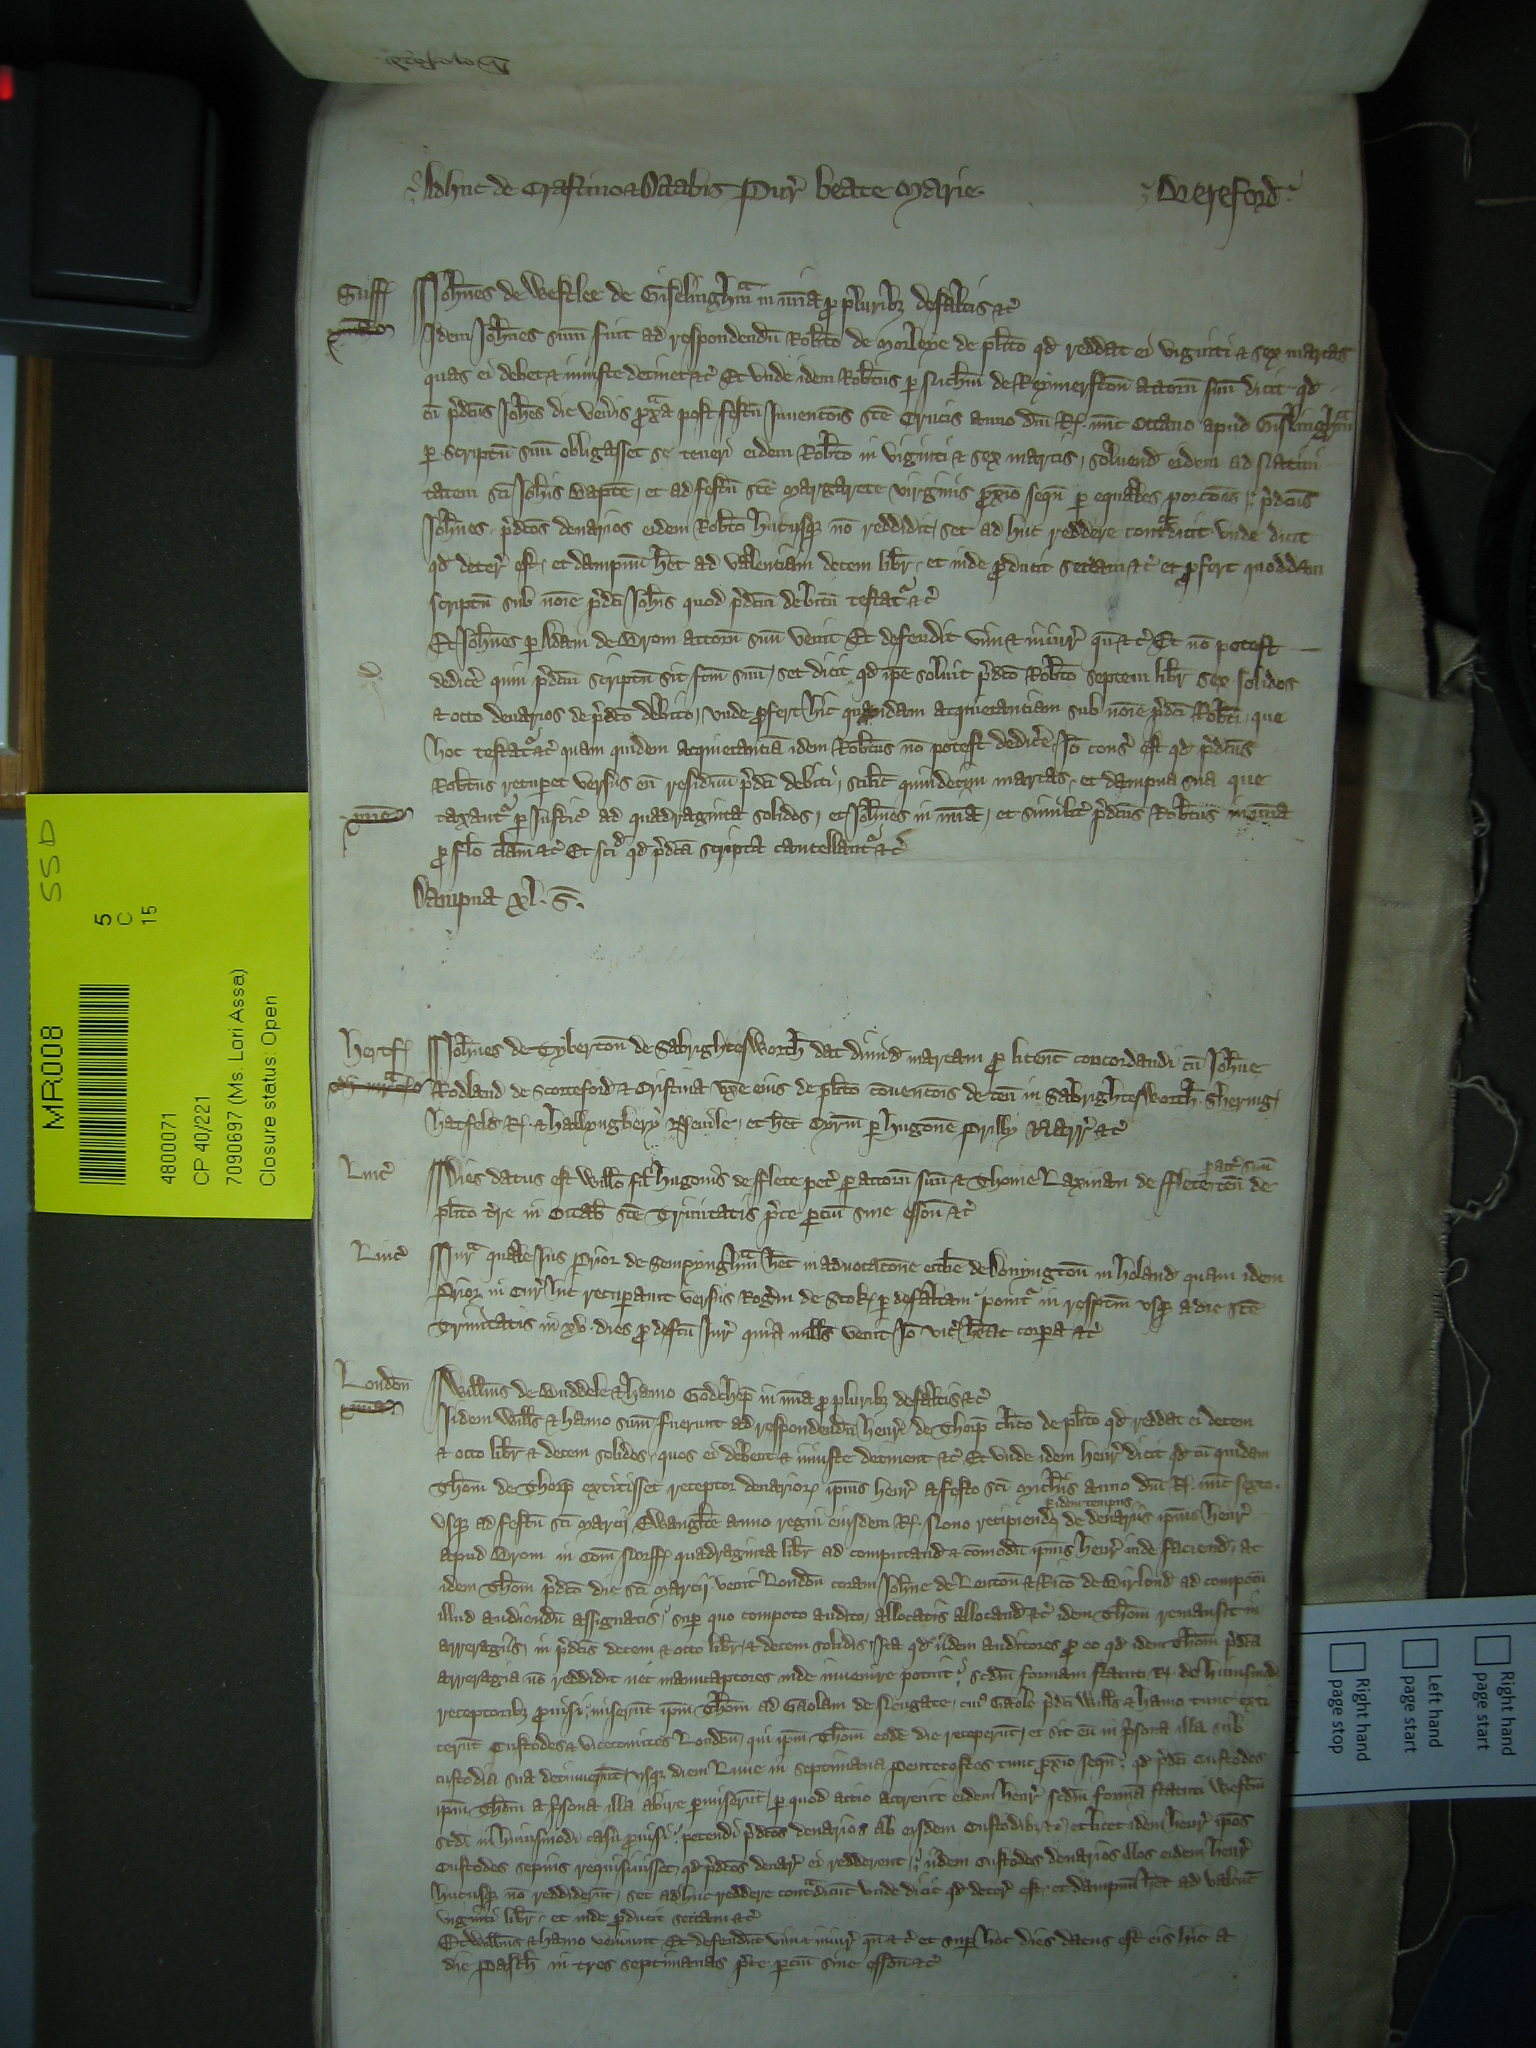 Adhuc de Crastino & Octabis Pur' beate Marie
Hereford
Suff' Joh'nes de Westlee de Giselingh'm in m'ia p' plurib3 defaltis &c'
m'ia Idem Joh'nes sum' fuit ad respondend' Rob'to de Morleye de pl'ito q'd reddat ei viginti & sex marcas
quas ei debet & iniuste detinet &c' Et unde idem Rob'tus p' Nich'm de Reymerston' attorn' suu' dicit q'd
cu' p'd'cus Joh'es die Ven'is p'x'a post festu' Inuent'ois s'ce Crucis anno d'ni R' nu'c octauo apud Giselingh'm
p' scriptu' suu' obligasset se teneri eidem Rob'to in viginti & sex marcis, soluend' eidem ad Natiui
tatem s'ci Joh'is Bapt'e, et ad festu' s'ce Margarete virginis p'xi'o sequ' p' equales porc'oes, p'd'cus
Joh'nes p'd'cos denarios eidem Rob'to hucusq' no' reddidit, set ad huc reddere cont'dicit unde dicit
q'd deter' est, et dampnu' h'et ad valenciam decem libr', et inde p'ducit sectam &c' et p'fert quoddam
scriptu' sub no'ie p'd'ci Joh'is quod p'd'c'm debitu' testat' &c'
Et Joh'nes p' Adam de Brom attorn' suu' venit Et defendit vim & iniur' qu' &c' Et no' potest
dedic'e quin p'd'c'm scriptu' sit f'c'm suu', set dicit q'd ip'e soluit p'd'co Rob'to septem libr' sex solidos
& octo denarios de p'd'co debito, unde p'fert hic quandam acquietanciam sub no'ie p'd'ci Rob'ti, que
hoc testat' &c' quam quidem acquietancia' idem Rob'tus no' potest dedic'e Jo' cons' est q'd p'd'cus
Rob'tus recup'et versus eu' residuu' p'd'ci debiti, scil't quindecim marcas, et dampna sua que
m'ie taxant' p' Justic' ad quadraginta solidos, et Joh'nes in m'ia, et simil'r p'd'cus Rob'tus in m'ia
p' f'lo clam' &c' Et sci'd' q'd p'd'ca scripta cancellant' &c'
Dampna xl. s'.
Hertf' Joh'nes de Tyberton' de Sabrightesworth' dat dimid' marcam p' licenc' concordandi cu' Joh'ne
di' m'r' Rodland de Storteford & Cristina ux'e eius de pl'ito conuenc'ois de ten' in Sabrightesworth', Shering,
Hatfeld R' & Hallyngbery, et h'et Cyr'm p' Hugone' Prilly Narr' &c'
Linc' Dies datus est Will'o fil' Hugonis de Flete pet' p' attorn' suu' & Thome Laxman de Flete p' att' suu' ten' de
pl'ito t're in Octab' s'ce Trinitatis p'ce p'ciu' sine esson' &c'
Linc' Jur' quale Jus Prior de Sempyngh'm h'et in aduocac'one ecc'lie de Donyngton' in Holand quam idem
Prior in Cur' hic recup'auit versus Rog'm de Stok' p' defaltam ponit' in resp'tm usq' a die s'ce
Trinitatis in xv. dies p' def'tu Jur' quia nullus venit Jo' vic' h'eat corp'a &c'
London' Will's de & Hamo Godchep' in m'ia p' plurib3 defaltis &c'
m'ia Iidem Will's & Hamo sum' fuerunt ad respondend' Henr' de Thorp' cl'ico de pl'ito q'd reddat ei decem
& octo libr' & decem solidos, quos ei debent & iniuste detinent &c' Et unde idem Henr' dicit q'd cu' quidam
Thom' de Thorp' extitisset receptor denarior' ip'ius Henr' a festo s'ci Mich'is anno d'ni R' nu'c sexto
usq' ad festu' s'ci Marci Ewang'lte anno regni eiusdem R' Nono recipiend' p' idem tempus de denariis ip'ius Henr'
apud Brom in Com' Norff' quadraginta libr' ad computand' & com'odu' ip'ius Henr' inde faciend', ac
idem Thom' p'd'co die s'ci Marcij venit London' coram Joh'ne de Lenton' & Ric'o de ad compotu'
illud audiendu' assignatis, sup' quo compoto audito, allocatis allocand' &c' idem Thom' remansit in
arreragiis in p'd'cis decem & octo libr' & decem solidis, Ita q'd iidem auditores p' eo q'd idem Thom' p'd'ca
arreragia no' reddidit nec manucaptores inde inuenire potuit, s'c'dm formam statuti R' de hui'modi
receptorib3 p'uisi, miserunt ip'm Thom' ad Gaolam de Neugate, cui' Gaole p'd'ci Will's & Hamo tunc exti
terunt Custodes & vicecomites London', qui ip'm Thom' eode' die receperunt, et sic eu' in p'sona illa sub
custodia sua detinuerunt, usq' diem Lune in septimana Pentecostes tunc p'xi'o sequ', q'd p'd'ci custodes
ip'm Thom' a p'sona illa abire p'miserunt, p' quod actio accreuit eidem Henr' s'c'dm forma' statuti Westm'
sc'di in huiusmodi casu p'uisi, petendi p'd'cos denarios ab eisdem Custodib3 &c' et licet idem Henr' ip'os
Custodes sepius requisiuisset, q'd p'd'cos denar' ei redderent, iidem custodes denarios illos eidem Henr'
hucusq' no' reddiderunt, set adhuc reddere cont'dicunt unde dicit q'd deter' est, et dampnu' h'et ad valenc'
viginti libr', et inde p'ducit sectam &c'
Et Will's & Hamo veniunt Et defendunt vim & iniur' qu' &c' et sup' hoc dies datus est eis hic a
die Pasch' in tres septimanas p'ce p'ciu' sine esson' &c'
MR008
SSD
5
C
15
4800071
CP 40/221
7090697 (Ms. Lori Assa)
Closure status: Open
Right hand
page start
Left hand
page start
Right hand
page stop